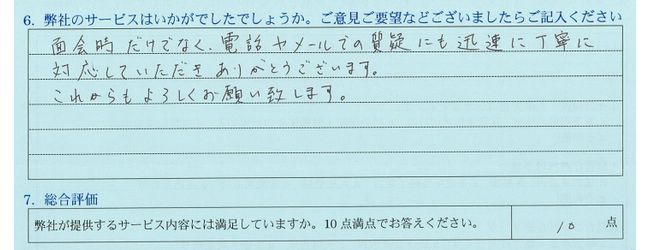 6. 弊社のサービスはいかがでしたでしょうか。ご意見ご要望などございましたらご記入ください
面会時だけでなく、電話やメールでの質疑にも迅速に丁寧に
対応していただきありがとうございます。
これからもよろしくお願い致します。
7. 総合評価
弊社が提供するサービス内容には満足していますか。10点満点でお答えください。 10 点